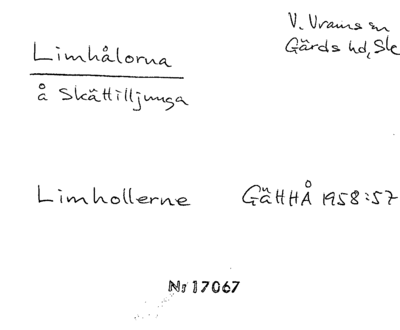 V. Vrams sn
Gärds hd, Sk
Limhålorna
å Skättilljunga
Limhollerne GÄHHÅ 1958:57
Nr 17067